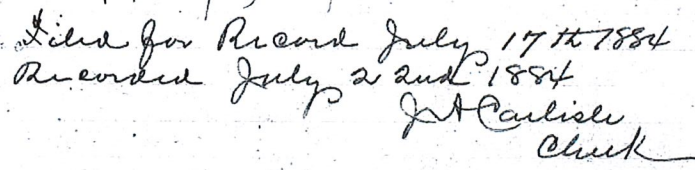 Filed for Record July 17th 1884
Recorded July 22nd 1884
J A Carlisle
Clerk